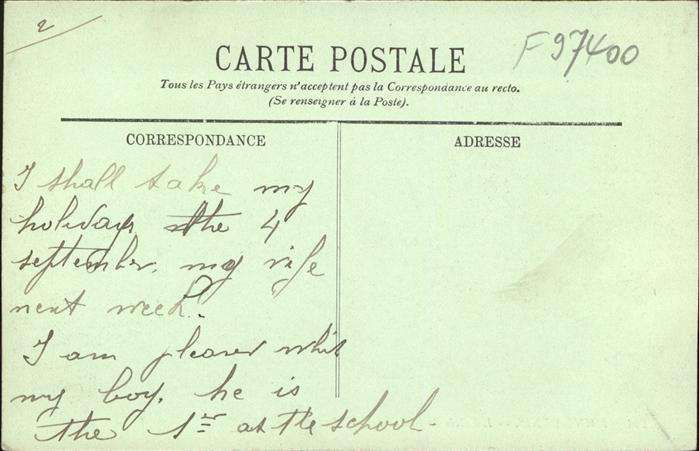 2
F 97400
CARTE POSTALE
Tous les Pays étrangers n'acceptent pas la Correspondance au recto.
(Se renseigner à la Poste).
CORRESPONDANCE
ADRESSE
I shall take my
holidays the 4
september, my vife
next week.
I am pleased whit
my boy, he is
the 1er at the school -